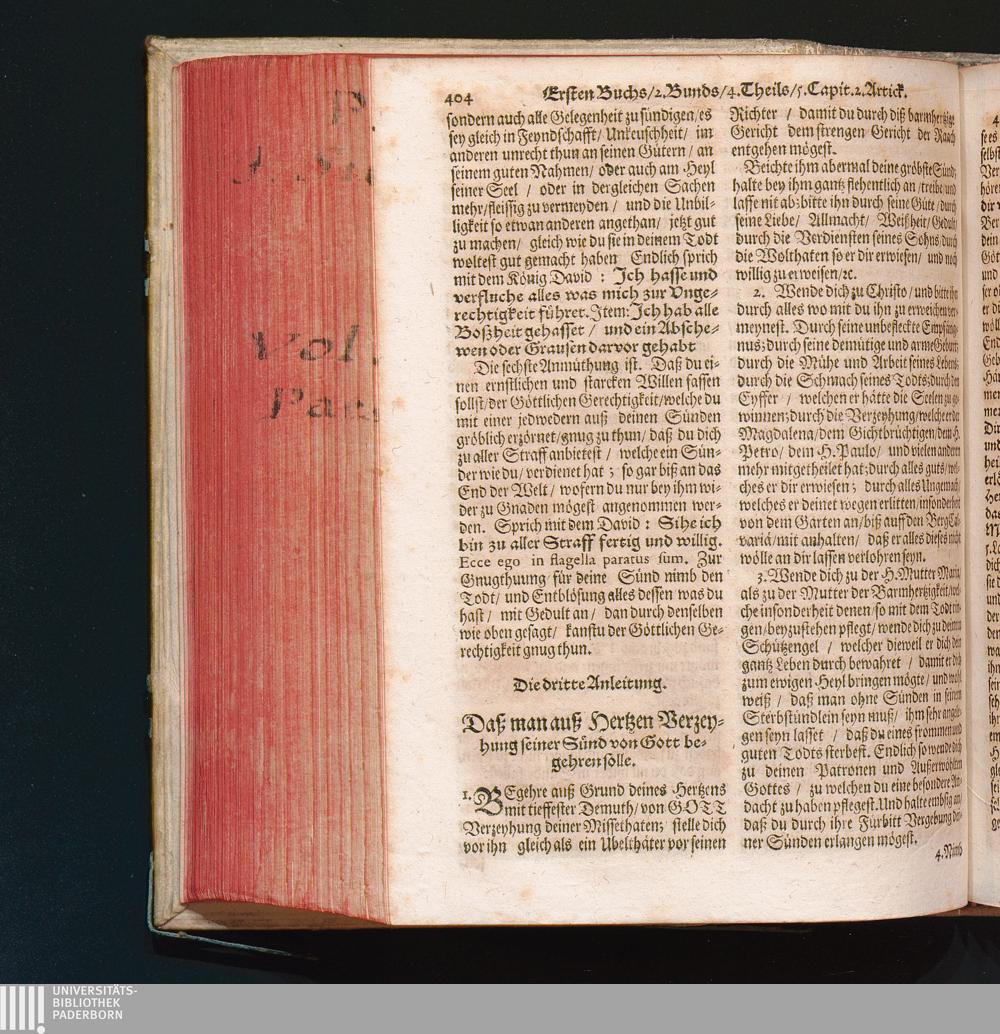 404 Ersten Buchs/2. Bunds/4. Theils/5. Capit. 2. Artick.
sondern auch alle Gelegenheit zu sündigen/es
sey gleich in Feyndschafft/ Unkeuschheit/ im
anderen unrecht thun an seinen Gütern/ an
seinem guten Nahmen/ oder auch am Heyl
seiner Seel / oder in dergleichen Sachen
mehr/fleissig zu vermeyden / und die Unbil-
ligkeit so etwan anderen angethan/ jetzt gut
zu machen/ gleich wie du sie in deinem Todt
woltest gut gemacht haben Endlich sprich
mit dem König David : Ich hasse und
verfluche alles was mich zur Unge-
rechtigkeit führet. Item: Ich hab alle
Boßheit gehasset / und ein Absche-
wen oder Grausen darvor gehabt
Die sechste Anmüthung ist. Daß du ei-
nen ernstlichen und starcken Willen fassen
sollst/der Göttlichen Gerechtigkeit/welche du
mit einer jedwedern auß deinen Sünden
gröblich erzörnet/gnug zu thun/ daß du dich
zu aller Straff anbietest / welche ein Sün-
der wie du/ verdienet hat ; so gar biß an das
End der Welt / wofern du nur bey ihm wi-
der zu Gnaden mögest angenommen wer-
den. Sprich mit dem David : Sihe ich
bin zu aller Straff fertig und willig.
Ecce ego in flagella paratus sum. Zur
Gnugthuung für deine Sünd nimb den
Todt/ und Entblösung alles dessen was du
hast/ mit Gedult an/ dan durch denselben
wie oben gesagt/ kanstu der Göttlichen Ge-
rechtigkeit gnug thun.
Die dritte Anleitung.
Daß man auß Hertzen Verzey-
hung seiner Sünd von Gott be-
gehren solle.
1. BEgehre auß Grund deines Hertzens
mit tieffester Demuth/ von GOTT
Verzeyhung deiner Missethaten; stelle dich
vor ihn gleich als ein Ubelthäter vor seinen
Richter / damit du durch diß barmhertzige
Gericht dem strengen Gericht der Raach
entgehen mögest.
Beichte ihm abermal deine gröbste Sünd;
halte bey ihm gantz flehentlich an / treibe/und
lasse nit ab: bitte ihn durch seine Güte / durch
seine Liebe/ Allmacht/ Weißheit/ Gedult/
durch die Verdiensten seines Sohns/ durch
die Wolthaten so er dir erwiesen/ und noch
willig zu erweisen/ꝛc.
2. Wende dich zu Christo/ und bitte ihn
durch alles wo mit du ihn zu erweichen ver-
meynest. Durch seine unbefleckte Empfäng-
nus; durch seine demütige und arme Geburt;
durch die Mühe und Arbeit seines Lebens;
durch die Schmach seines Todts; durch den
Eyffer / welchen er hätte die Seelen zu ge-
winnen; durch die Verzeyhung/welche er der
Magdalena/dem Gichtbrüchtigen/dem H.
Petro/ dem H. Paulo/ und vielen anderen
mehr mitgetheilet hat; durch alles guts/ wel-
ches er dir erwiesen ; durch alles Ungemach/
welches er deinet wegen erlitten/insonderheit
von dem Garten an/biß auff den Berg Cal-
variä/mit anhalten/ daß er alles dieses nicht
wölle an dir lassen verlohren seyn.
3. Wende dich zu der H. Mutter Maria/
als zu der Mutter der Barmhertzigkeit/wel-
che insonderheit denen/so mit dem Todt rin-
gen/beyzustehen pflegt/ wende dich zu deinem
Schützengel / welcher dieweil er dich dein
gantz Leben durch bewahret / damit er dich
zum ewigen Heyl bringen mögte/ und wohl
weiß / daß man ohne Sünden in seinem
Sterbstündlein seyn muß/ ihm sehr angele-
gen seyn lasset / daß du eines frommen und
guten Todts sterbest. Endlich so wende dich
zu deinen Patronen und Außerwöhlten
Gottes / zu welchen du eine besondere An-
dacht zu haben pflegest. Und halte embsig an/
daß du durch ihre Fürbitt Vergebung dei-
ner Sünden erlangen mögest.
4. Nimb
Vol.
UNIVERSITÄTS-
BIBLIOTHEK
PADERBORN